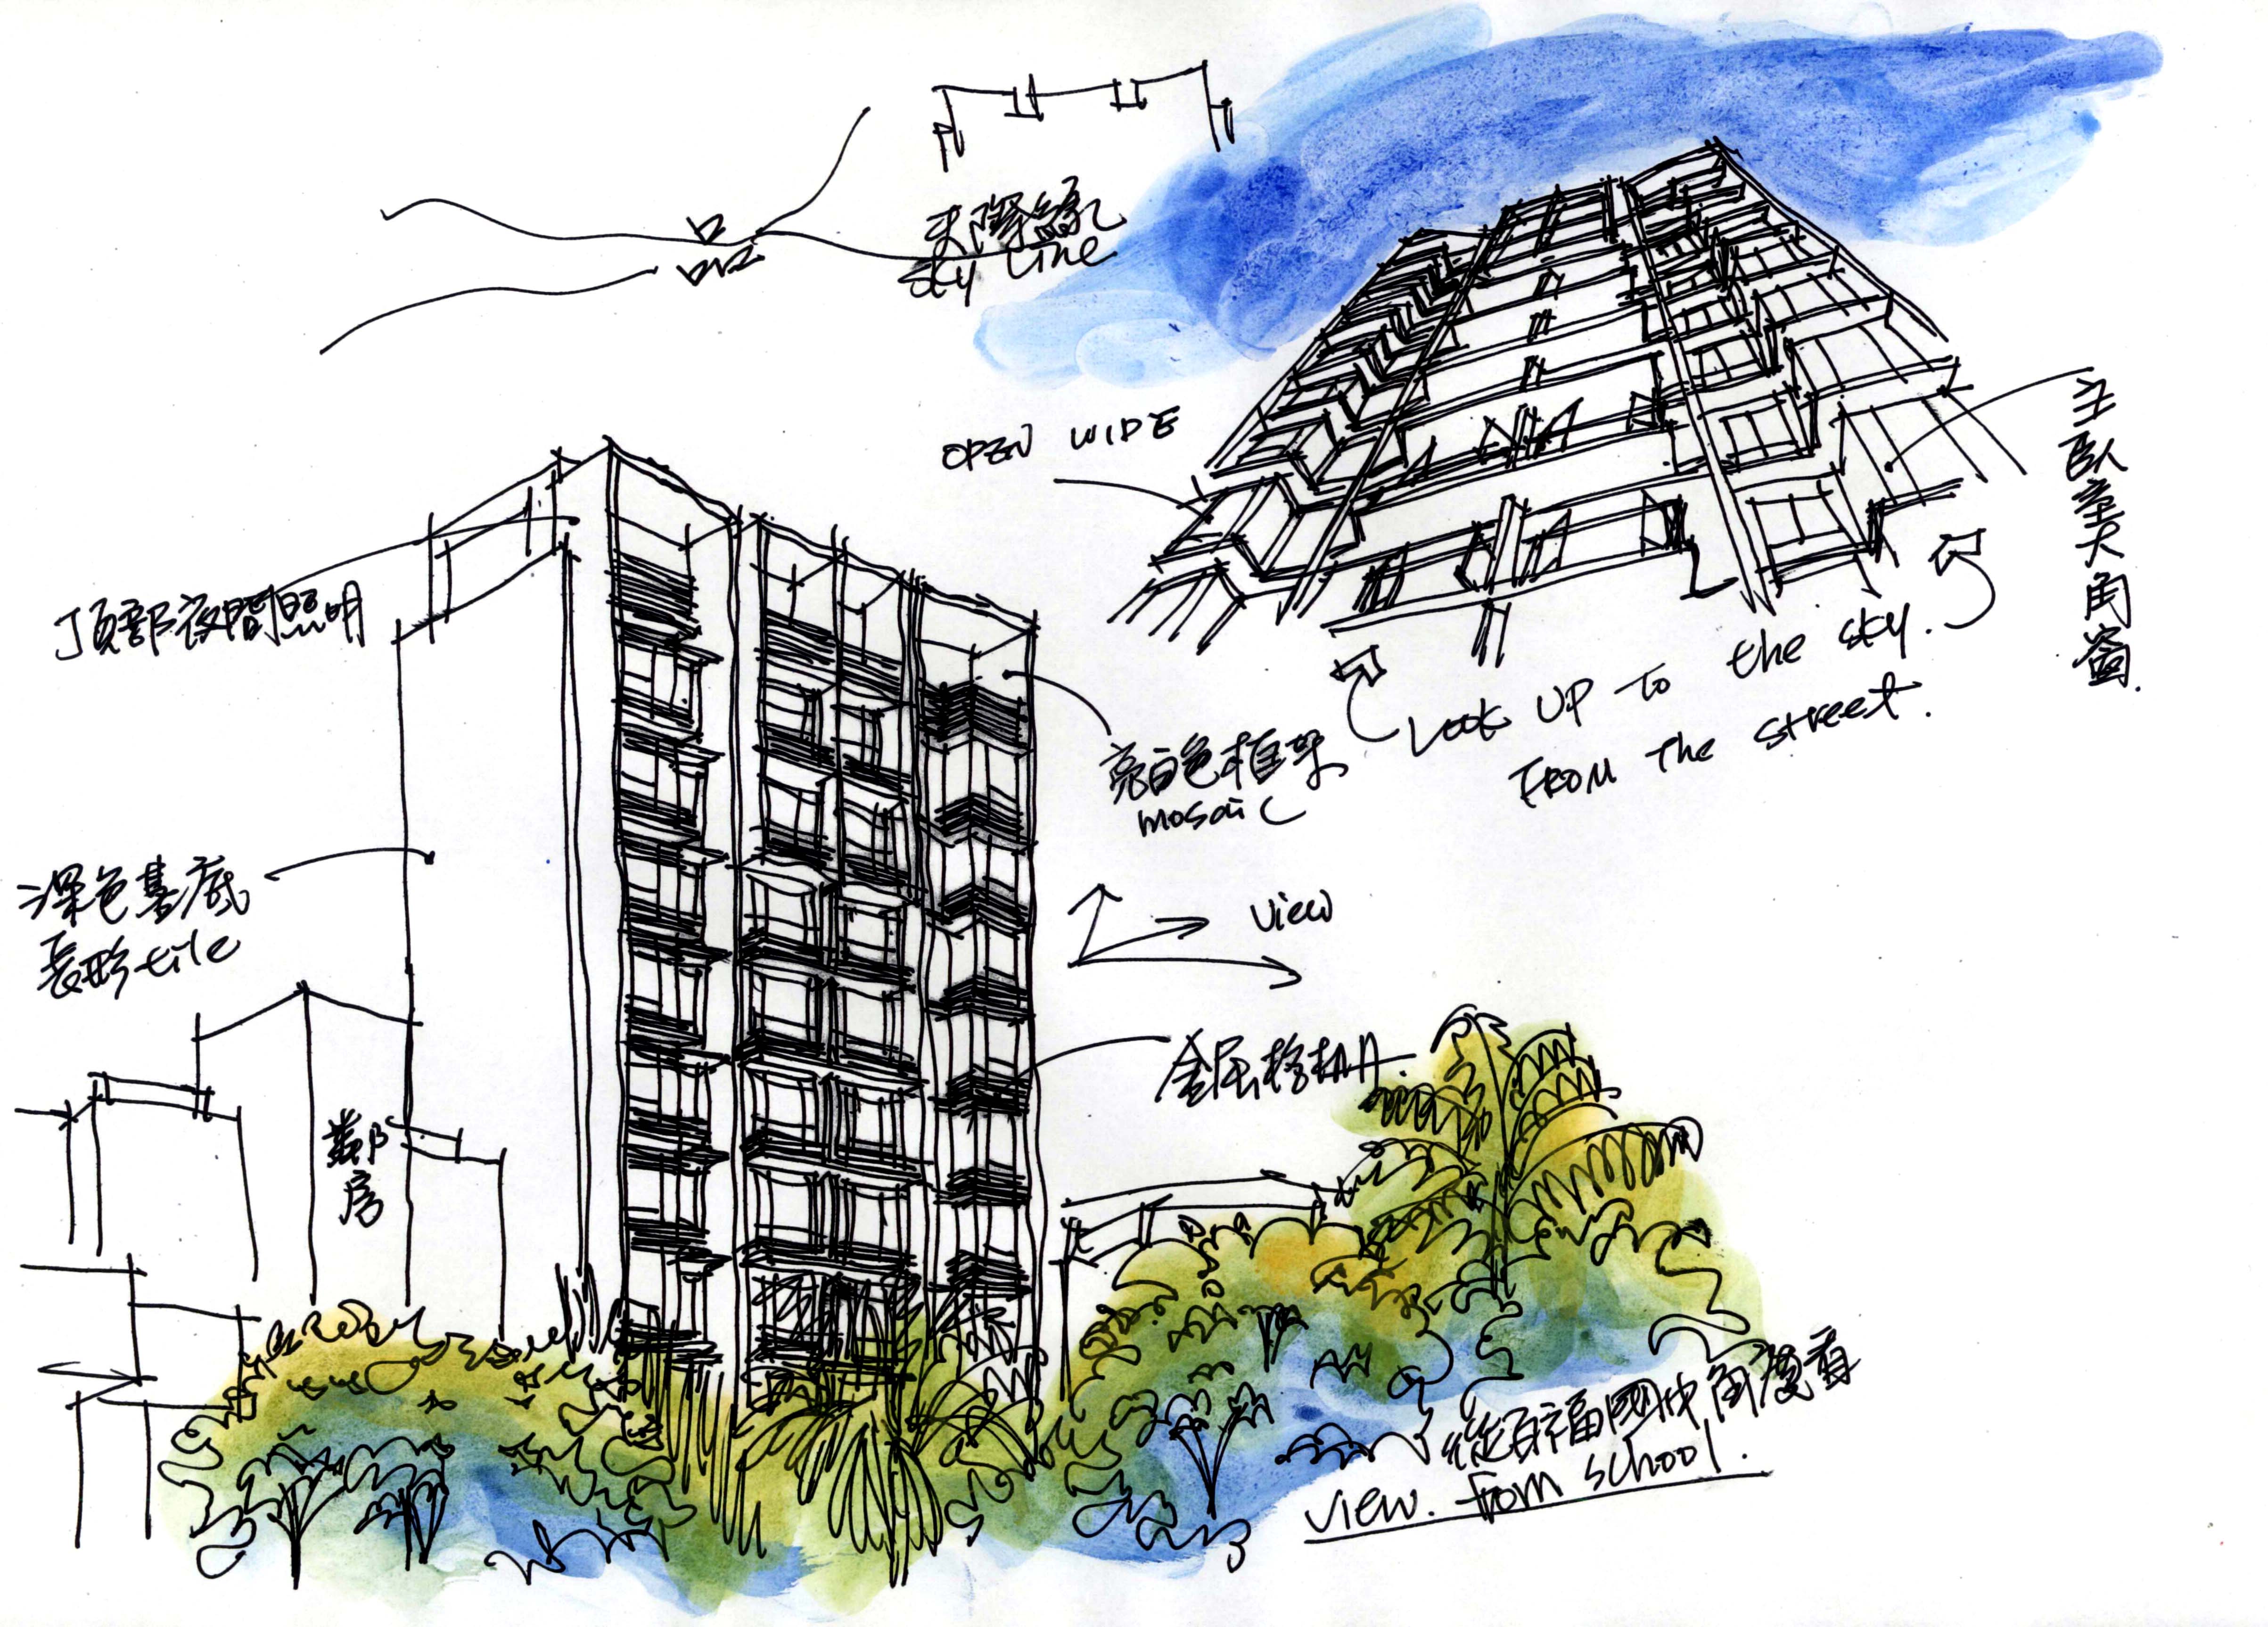 天際線
sky line
OPEN WIDE
主臥室大角窗.
頂部夜間照明
Look UP To the sky.
FROM The street.
亮白色框架
mosaic
深色基底
長形tile
view
金屬格柵.
鄰房
從百福國中角度看
view. from school.